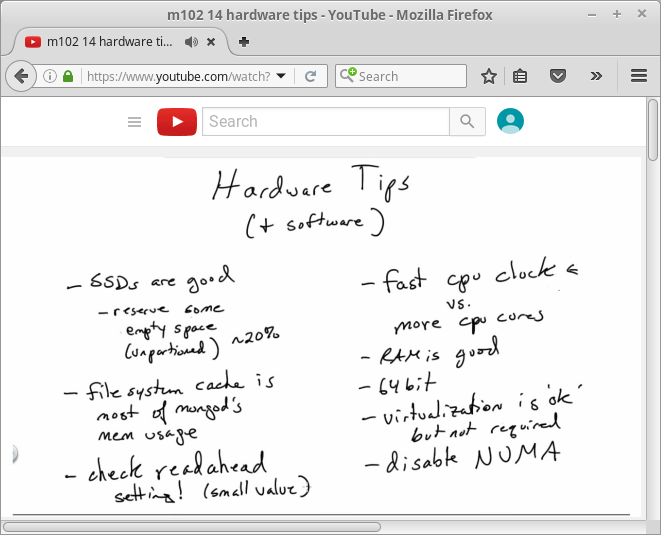 m102 14 hardware tips - YouTube - Mozilla Firefox
m102 14 hardware ti...
https://www.youtube.com/watch?
Search
Search
Hardware Tips
(+ software)
- SSDs are good
- reserve some
empty space
(unpartioned) ~20%
- file system cache is
most of mongod's
mem usage
- check readahead
setting! (small value)
- fast cpu clock ←
vs.
more cpu cores
- RAM is good
- 64 bit
- virtualization is 'ok'
but not required
- disable NUMA